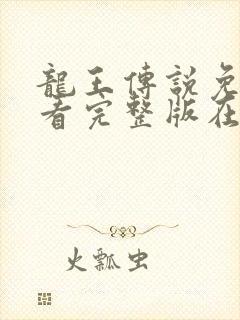 龍王傳說免
看完整版在
火瓢虫